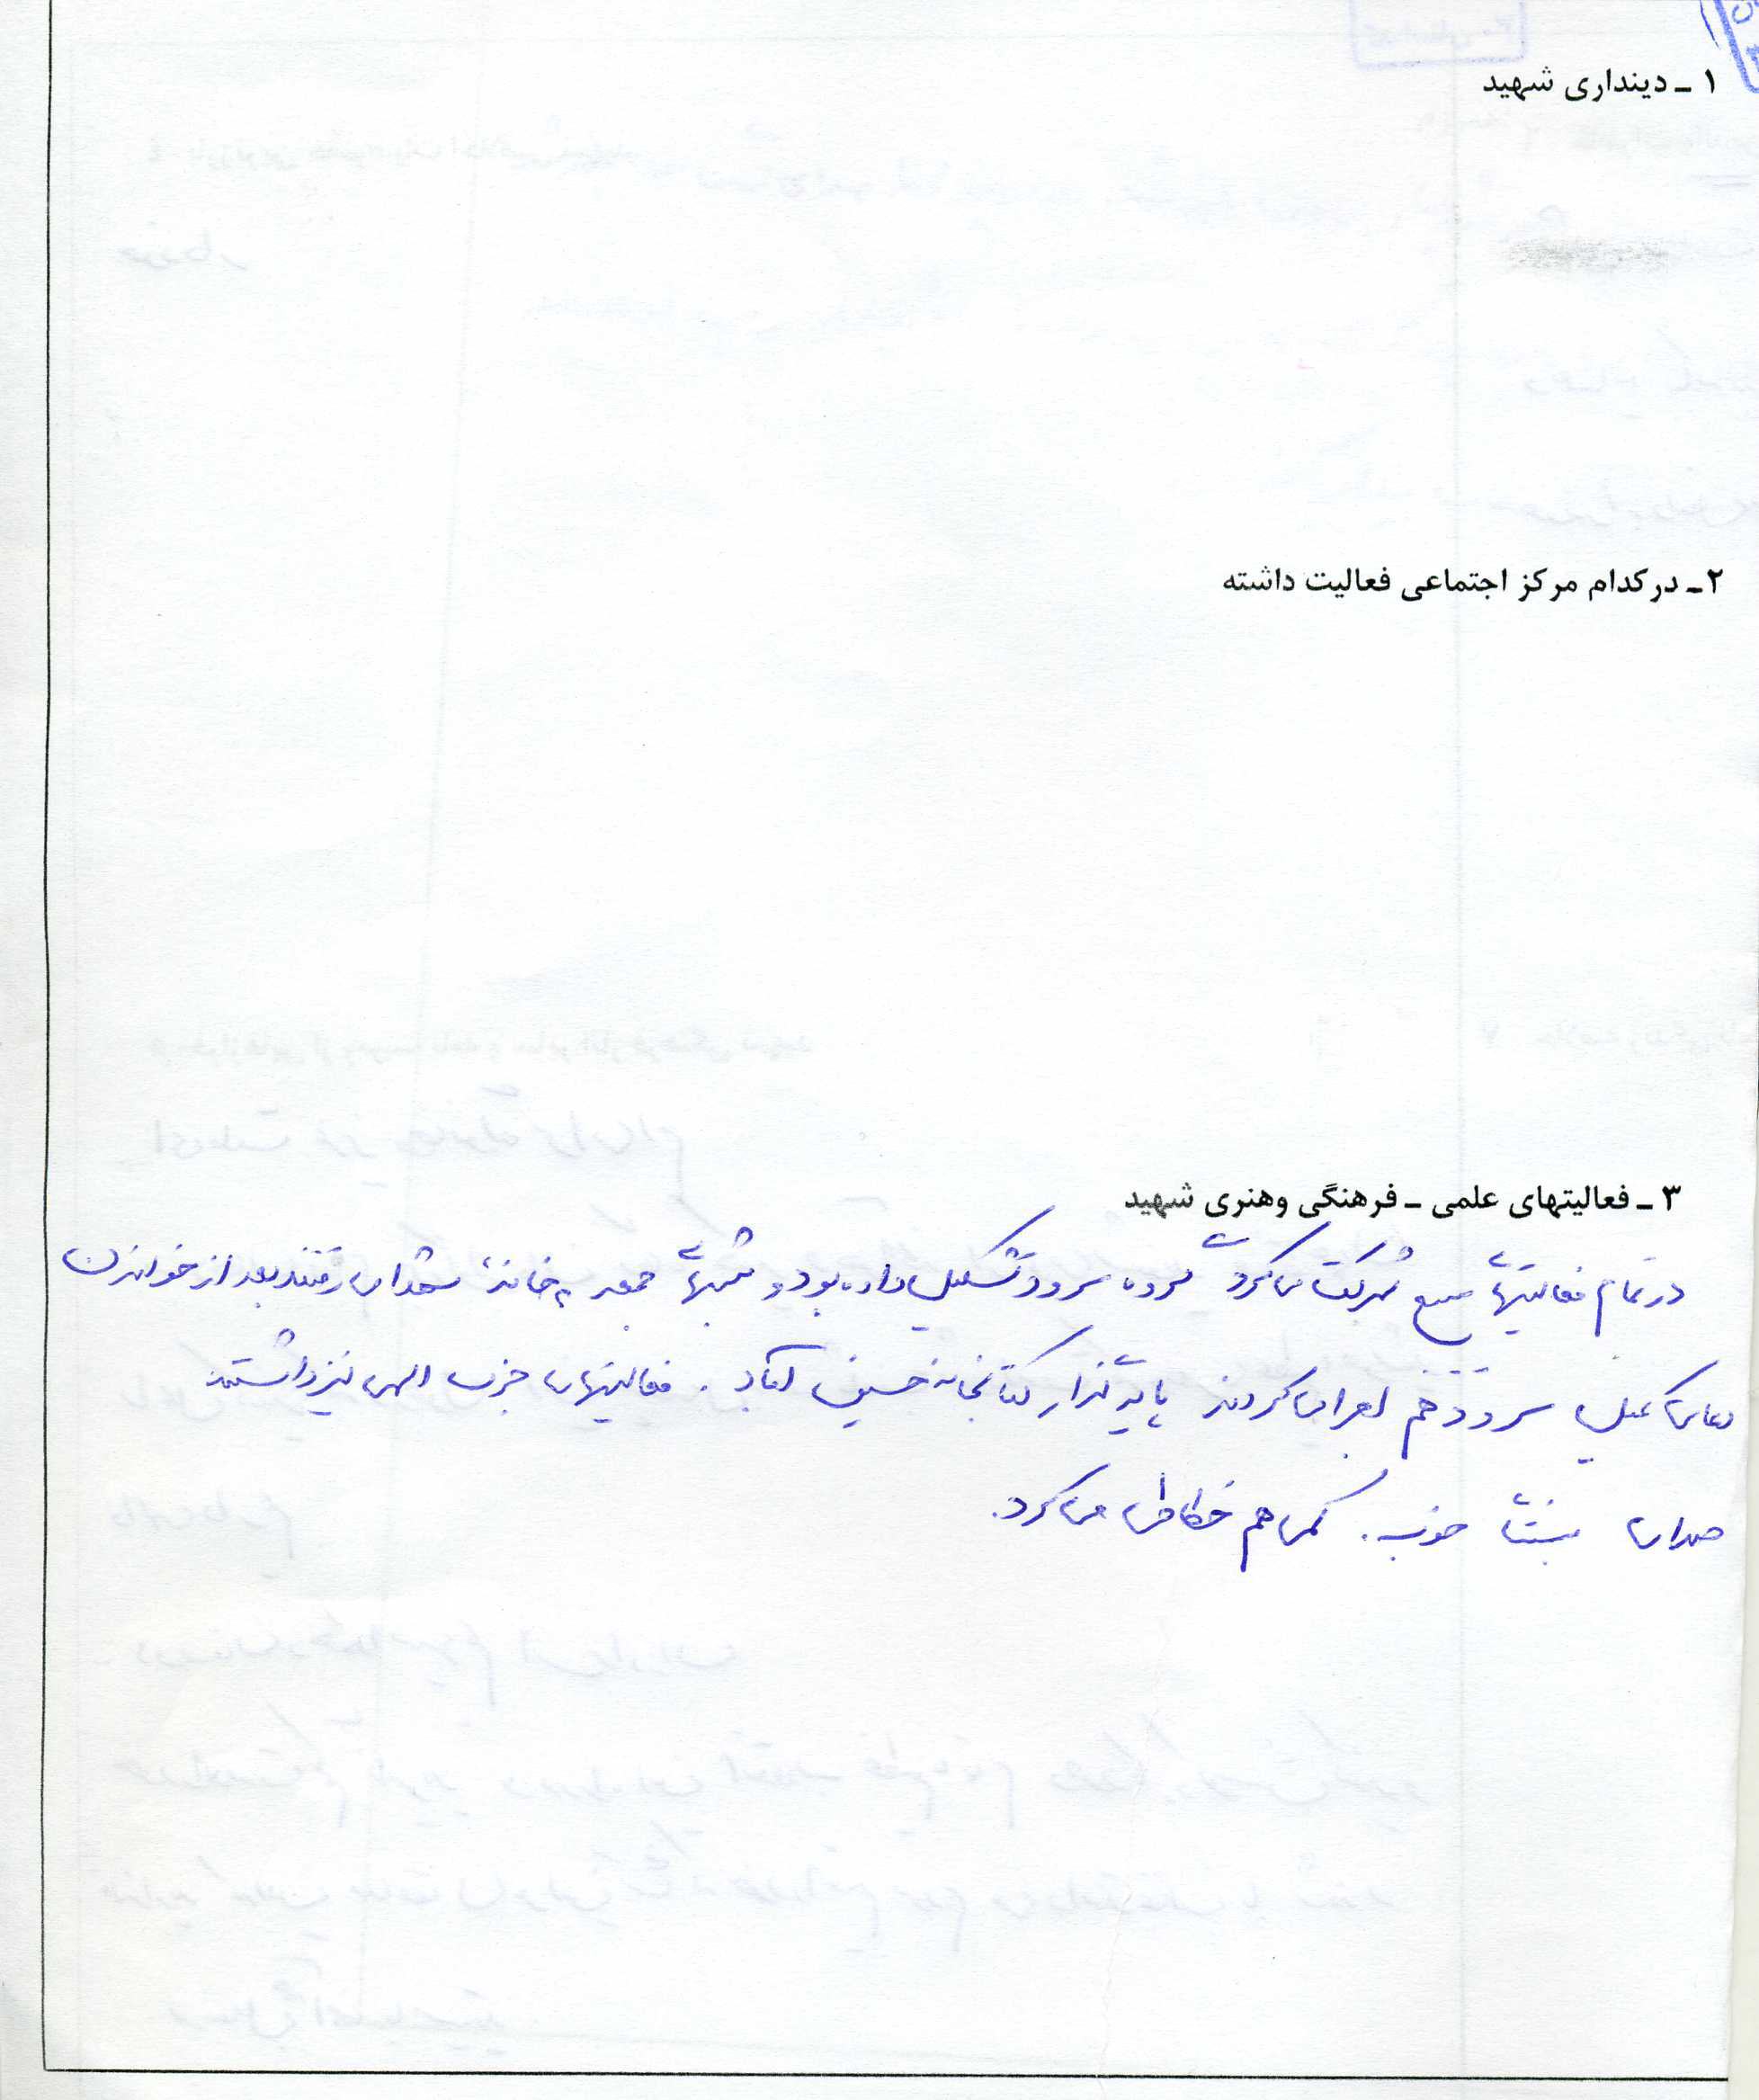 ۱ ـ دینداری شهید
۲ـ درکدام مرکز اجتماعی فعالیت داشته
۳ ـ فعالیتهای علمی ـ فرهنگی وهنری شهید
در تمام فعالیتهای بسیج شرکت می‌کرد گروه سرود تشکیل داده بود و شبهای جمعه به خانهٔ شهدا می رفتند بعد از خواندن
دعای کمیل سرود هم اجرا می کردند کتابخانه حسینی . فعالیتهای حزب الهی نیز داشتند
صدای خوب . کمی هم خطاطی می کرد.